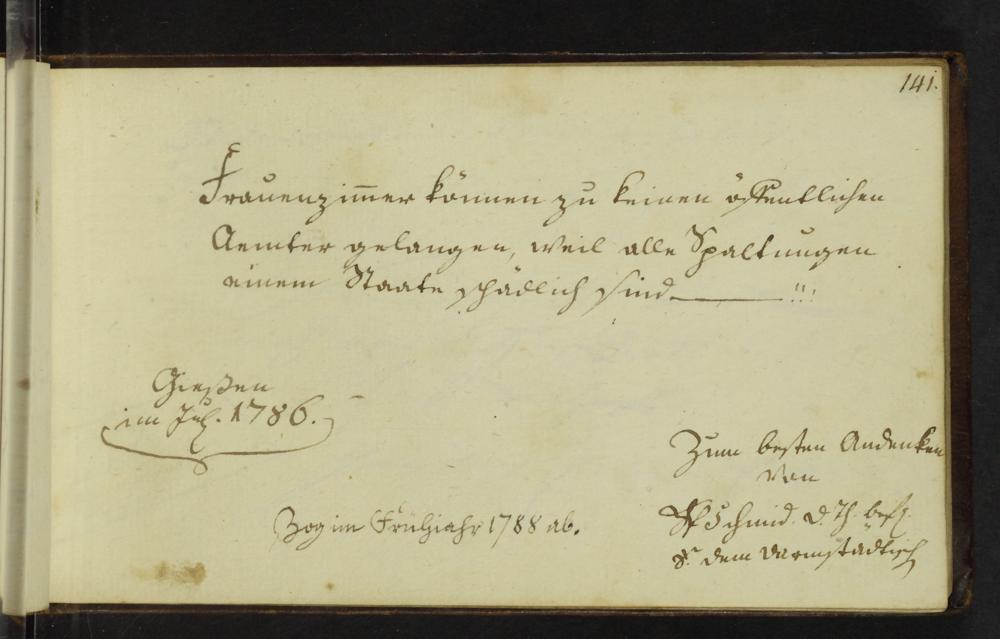 141.
Frauenzimmer können zu keinen öffentlichen
Aemter gelangen, weil alle Spaltungen
einem Staate schädlich sind ——— !!!
Gießen
im Jul. 1786.
Zum besten Andenken
von
Schmid. d. Th.
dem Darmstädtisch
Zog im Frühjahr 1788 ab.